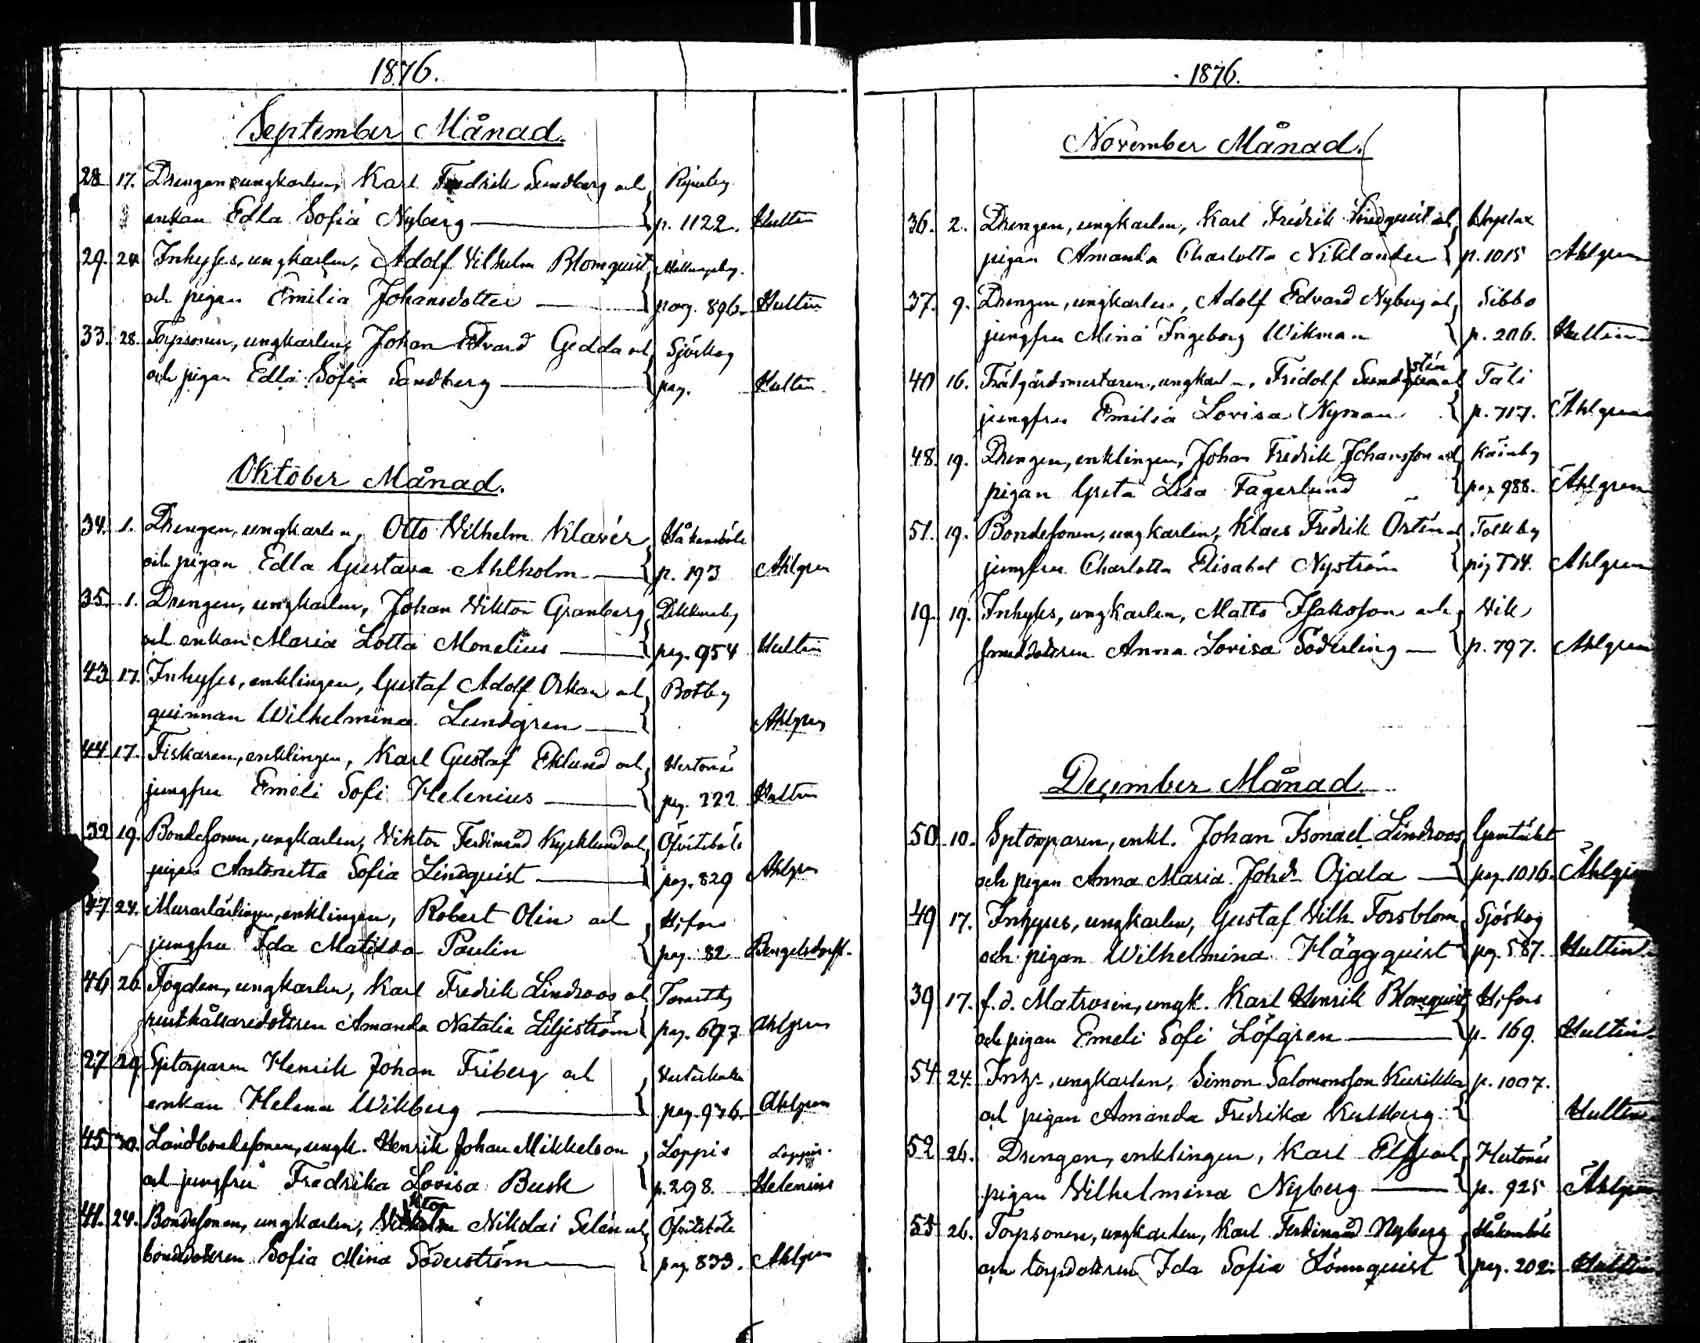 1876.
September Månad.
28 17. Drengen, ungkarlen, Karl Fredrik Sundberg och
enkan Edla Sofia Nyberg p. 1122. Hultin
29. Inhyses, ungkarlen, Adolf Vilhelm Blomquist
och pigan Emilia Johansdotter pag. 896. Hultin
33. 28. Torpsonen, ungkarlen, Johan Edvard Gedda och Sjöskog
och pigan Edla Sofia Sandberg pag. Hultin
Oktober Månad.
34. 1. Drengen, ungkarlen, Otto Vilhelm Klavér Håkansböle
och pigan Edla Gustava Ahlholm p. 193 Ahlgren
35. 1. Drengen, ungkarlen, Johan Viktor Granberg Dickursby
och enkan Maria Lotta Monelius pag. 954 Hultin
43 17. Inhyses, enklingen, Gustaf Adolf Orkan och Botby
quinnan Wilhelmina Lundgren Ahlgren
44 17. Fiskaren, enklingen, Karl Gustaf Eklund och Hertonäs
jungfru Emeli Sofi Helenius pag. 222 Hultin
32 19. Bondesonen, ungkarlen, Viktor Ferdinand Kycklund och
pigan Antonetta Sofia Lindquist pag. 829 Ahlgren
47 24. Murarlärlingen, enklingen, Robert Olin och H:fors
jungfru Ida Matilda Paulin pag. 82 Bengelsdorff.
46 26 Fogden, ungkarlen, Karl Fredrik Lindroos och
rusthållaredottren Amanda Natalia Liljeström pag. 697 Ahlgren
27 29. Henrik Johan Friberg och
enkan Helena Wikberg pag. 976. Ahlgren
45 30. Landbondesonen, ungk. Henrik Johan Mikkelson Loppis Loppis.
och jungfru Fredrika Lovisa Busk p. 298. Helenius
41. 24. Bondesonen, ungkarlen, Viktor Nikolai Selén och
bondedottren Sofia Mina Söderström pag. 833. Ahlgren
1876.
November Månad.
36. 2. Drengen, ungkarlen, Karl Fredrik Lindquist och
pigan Amanda Charlotta Niklander p. 1015 Ahlgren
37. 9. Drengen, ungkarlen, Adolf Edvard Nyberg och Sibbo
jungfru Mina Ingeborg Wikman p. 206. Hultin
40 16. Trädgårdsmestaren, ungkarl., Fridolf Sundstén och Tali
jungfru Emilia Lovisa Nyman p. 717. Ahlgren
48. 19. Drengen, enklingen, Johan Fredrik Johansson och Kårnby
pigan Greta Lisa Fagerlund pag. 988. Ahlgren
51. 19. Bondesonen, ungkarlen, Klaes Fredrik Ostén och Tolkby
jungfru Charlotta Elisabet Nyström pag. 774. Ahlgren
19. 19. Inhyses, ungkarlen, Matts Isaksson och Vik
smeddottren Anna Lovisa Söderling p. 797. Ahlgren
December Månad.
50 10. Sptorparen, enkl. Johan Ismael Lindroos Gumtäkt
och pigan Anna Maria Johds. Ojala pag. 1016. Ahlgren
49 17. Inhyses, ungkarlen, Gustaf Vilh. Forsblom Sjöskog
och pigan Wilhelmina Häggquist pag. 587. Hultin
39 17. f.d. Matrosen, ungk. Karl Henrik Blomquist H:fors
och pigan Emeli Sofi Löfgren p. 169. Hultin
54 24. Inhs., ungkarlen, Simon Salomonsson Kurikka p. 1007.
och pigan Amanda Fredrika Kullberg Hultin
52 26. Drengen, enklingen, Karl Elg och Hertonäs
pigan Vilhelmina Nyberg p. 925 Ahlgren
55 26. Torpsonen, ungkarlen, Karl Ferdinand Nyberg Håkansböle
och torpdottren Ida Sofia Lönnquist pag. 202. Hultin